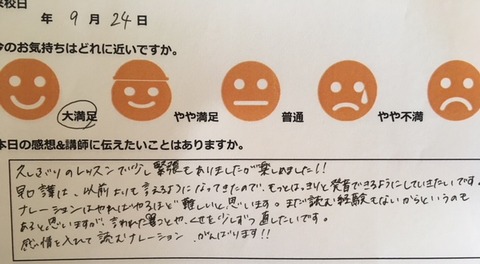 来校日
年 9月24日
今のお気持ちはどれに近いですか。
大満足 やや満足 普通 やや不満
本日の感想&講師に伝えたいことはありますか。
久しぶりのレッスンで少し緊張もありましたが楽しめました!!
早口言葉は、以前よりも言えるようになってきたので、もっとはっきりと発音できるようにしていきたいです。
ナレーションはやればやるほど難しいと思います。まだ読む経験もないからというのも
あると思いますが、言われた事や、くせを少しずつ直したいです。
感情を入れて読むナレーション がんばります!!